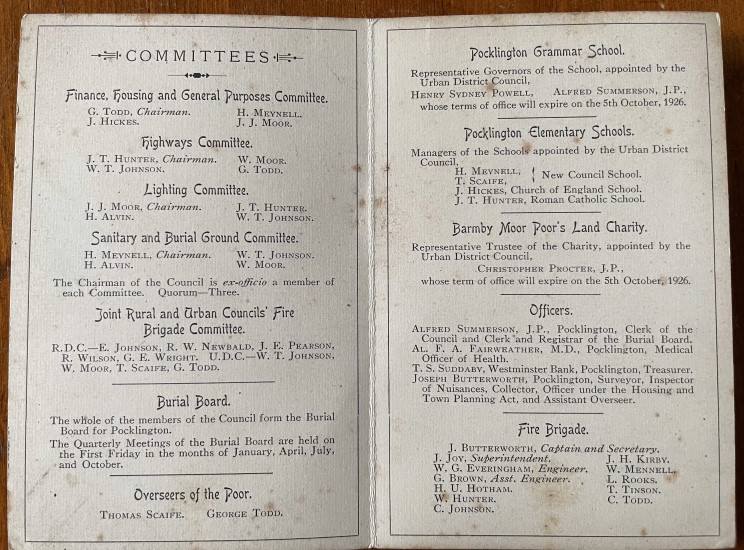 COMMITTEES
Finance, Housing and General Purposes Committee.
G. TODD, Chairman. H. MEYNELL.
J. HICKES. J. J. MOOR.
Highways Committee.
J. T. HUNTER, Chairman. W. MOOR.
W. T. JOHNSON. G. TODD.
Lighting Committee.
J. J. MOOR, Chairman. J. T. HUNTER.
H. ALVIN. W. T. JOHNSON.
Sanitary and Burial Ground Committee.
H. MEYNELL, Chairman. W. T. JOHNSON.
H. ALVIN. W. MOOR.
The Chairman of the Council is ex-officio a member of
each Committee. Quorum—Three.
Joint Rural and Urban Councils' Fire
Brigade Committee.
R.D.C.—E. JOHNSON, R. W. NEWBALD, J. E. PEARSON,
R. WILSON, G. E. WRIGHT. U.D.C.—W. T. JOHNSON,
W. MOOR, T. SCAIFE, G. TODD.
Burial Board.
The whole of the members of the Council form the Burial
Board for Pocklington.
The Quarterly Meetings of the Burial Board are held on
the First Friday in the months of January, April, July,
and October.
Overseers of the Poor.
THOMAS SCAIFE. GEORGE TODD.
Pocklington Grammar School.
Representative Governors of the School, appointed by the
Urban District Council,
HENRY SYDNEY POWELL, ALFRED SUMMERSON, J.P.,
whose terms of office will expire on the 5th October, 1926.
Pocklington Elementary Schools.
Managers of the Schools appointed by the Urban District
Council,
H. MEYNELL, } New Council School.
T. SCAIFE,
J. HICKES, Church of England School.
J. T. HUNTER, Roman Catholic School.
Barmby Moor Poor's Land Charity.
Representative Trustee of the Charity, appointed by the
Urban District Council,
CHRISTOPHER PROCTER, J.P.,
whose term of office will expire on the 5th October, 1926.
Officers.
ALFRED SUMMERSON, J.P., Pocklington, Clerk of the
Council and Clerk and Registrar of the Burial Board.
AL. F. A. FAIRWEATHER, M.D., Pocklington, Medical
Officer of Health.
T. S. SUDDABY, Westminster Bank, Pocklington, Treasurer.
JOSEPH BUTTERWORTH, Pocklington, Surveyor, Inspector
of Nuisances, Collector, Officer under the Housing and
Town Planning Act, and Assistant Overseer.
Fire Brigade.
J. BUTTERWORTH, Captain and Secretary.
J. JOY, Superintendent. J. H. KIRBY.
W. G. EVERINGHAM, Engineer. W. MENNELL.
G. BROWN, Asst. Engineer. L. ROOKS.
H. U. HOTHAM. T. TINSON.
W. HUNTER. C. TODD.
C. JOHNSON.